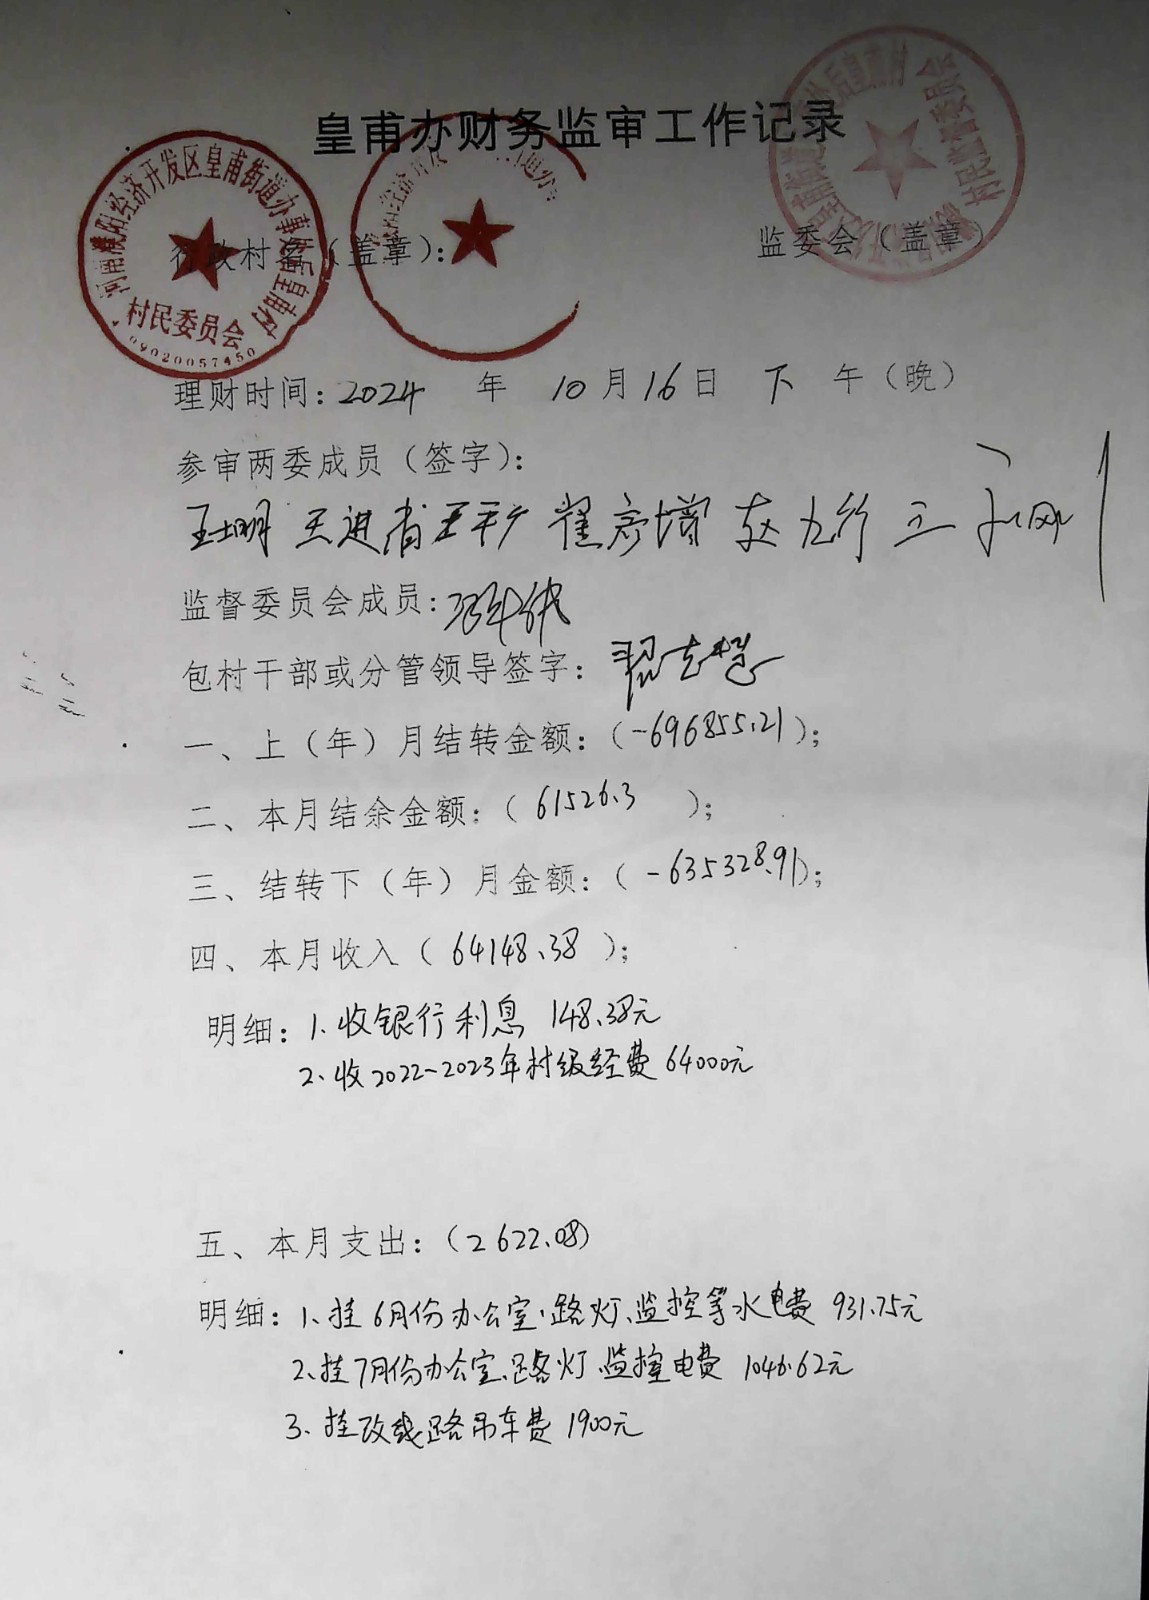 皇甫办财务监审工作记录
河南濮阳经济开发区皇甫街道办事处后皇甫村
村民委员会
09020057450
村民监督委员会
行政村名(盖章): 监委会(盖章)
理财时间:2024 年 10月16日 下 午(晚)
参审两委成员(签字):
监督委员会成员:
包村干部或分管领导签字:
一、上(年)月结转金额:(-696855.21);
二、本月结余金额:(61526.3);
三、结转下(年)月金额:(-635328.91);
四、本月收入(64148.38);
明细:1.收银行利息 148.38元
2.收2022-2023年村级经费 64000元
五、本月支出:(2622.08)
明细:1.挂6月份办公室.路灯.监控等水电费 931.75元
2.挂7月份办公室.路灯.监控电费 1046.62元
3.挂改线路吊车费 1900元